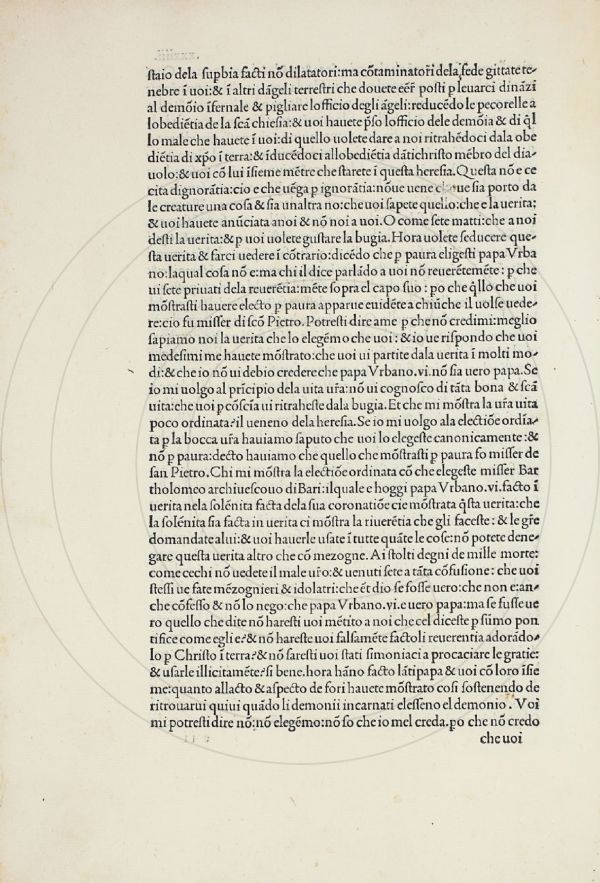 staio dela supbia facti nõ dilatatori:ma cõtaminatori dela fede gittate te-
nebre ĩ uoi:& ĩ altri dãgeli terrestri che douete eẽr posti p leuarci dinãzi
al demõio ĩfernale & pigliare lofficio degli ãgeli:reducẽdo le pecorelle a
lobediẽtia de la scã chiesia:& uoi hauete pso lofficio dele demõia & di ql
lo male che hauete ĩ uoi:di quello uolete dare a noi ritrahẽdoci dala obe
diẽtia di xpo ĩ terra:& ĩducẽdoci allobediẽtia dãtichristo mẽbro del dia-
uolo:& uoi cõ lui ĩsieme mẽtre che starete ĩ questa heresia. Questa nõ e ce
cita dignorãtia:cio e che uẽga p ignorãtia:nõue uene che ue sia porto da
le creature una cosa & sia unaltra no:che uoi sapete quello:che e la uerita:
& uoi hauete anũciata anoi & nõ noi a uoi. O come sete matti:che a noi
desti la uerita:& p uoi uolete gustare la bugia. Hora uolete seducere que-
sta uerita & farci uedere ĩ cõtrario:dicẽdo che p paura eligesti papa Vrba
no:laqual cosa nõ e:ma chi il dice parlãdo a uoi nõ reuerẽtemẽte: p che
ui sete priuati dela reuerẽtia:mẽte sopra el capo suo: po che qllo che uoi
mõstrasti hauere electo p paura apparue euidẽte a chiũche il uolse uede-
re:cio fu misser di scõ Pietro. Potresti dire ame p che nõ credimi:meglio
sapiamo noi la uerita che lo elegẽmo che uoi: & io ue rispondo che uoi
medesimi me hauete mõstrato:che uoi ui partite dala uerita ĩ molti mo-
di:& che io nõ ui debio credere che papa Vrbano.vi.nõ sia uero papa. Se
io mi uolgo al prĩcipio dela uita ura:nõ ui cognosco di tãta bona & scã
uita:che uoi p cõscĩa ui ritraheste dala bugia. Et che mi mõstra la ura uita
poco ordinata?il ueneno dela heresia. Se io mi uolgo ala electiõe ordĩa-
ta p la bocca ura hauiamo saputo che uoi lo elegeste canonicamente:&
nõ p paura:decto hauiamo che quello che mõstrasti p paura fo misser de
san Pietro. Chi mi mõstra la electiõe ordinata cõ che elegeste misser Bar
tholomeo archiuescouo di Bari:ilquale e hoggi papa Vrbano.vi.facto ĩ
uerita nela solẽnita facta dela sua coronatiõe cie mõstrata qsta uerita:che
la solẽnita sia facta in uerita ci mõstra la riuerẽtia che gli faceste: & le gre
domandate alui:& uoi hauerle usate ĩ tutte quãte le cose:nõ potete dene-
gare questa uerita altro che cõ mezogne. Ai stolti degni de mille morte:
come cechi nõ uedete il male uro:& uenuti sete a tãta cõfusione: che uoi
stessi ue fate mẽzognieri & idolatri:che ẽt dio se fosse uero:che non e:an-
che cõfesso & nõ lo nego:che papa Vrbano.vi.e uero papa:ma se fusse ue
ro quello che dite nõ haresti uoi mẽtito a noi che cel diceste p sũmo pon
tifice come egli e?& nõ hareste uoi falsamẽte factoli reuerentia adorãdo-
lo p Christo ĩ terra?& nõ saresti uoi stati simoniaci a procaciare le gratie:
& usarle illicitamẽte?si bene.hora hãno facto lãtipapa & uoi cõ loro ĩsie
me:quanto allacto & aspecto de fori hauete mõstrato cosi sostenendo de
ritrouarui quiui quãdo li demonii incarnati elesseno el demonio. Voi
mi potresti dire nõ:nõ elegẽmo:nõ so che io mel creda.po che nõ credo
che uoi